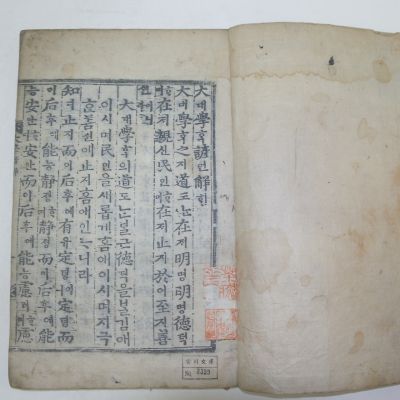 大대學학諺언解ᄒᆡ
大대學학之지道도ᄂᆞᆫ在ᄌᆡ明명明명德덕
ᄒᆞ며在ᄌᆡ親신民민ᄒᆞ며在ᄌᆡ止지於어至지善
션이니라
大대學학의道도ᄂᆞᆫᄇᆞᆯ근德덕을ᄇᆞᆯ킴애
이시며民민을새롭게홈애이시며지극
ᄒᆞᆫ션에止지홈애인ᄂᆞ니라
知디止지而이后후에有유定뎡이니定뎡而
이后후에能능靜졍ᄒᆞ며靜졍而이后후에能
능安안ᄒᆞ며安안而이后후에能능慮려ᄒᆞ며慮
No